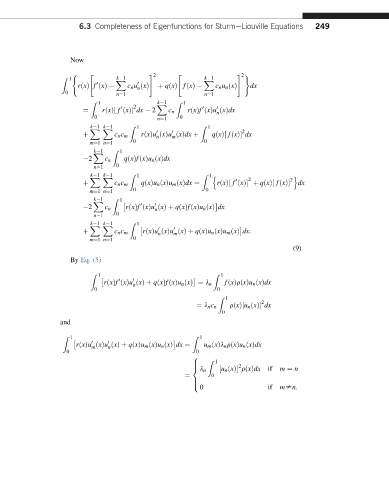 6.3 Completeness of Eigenfunctions for Sturm–Liouville Equations 249
Now
∫₀¹ { r(x) [ f′(x) − ∑_{n=1}^{k−1} cₙu′ₙ(x) ]² + q(x) [ f(x) − ∑_{n=1}^{k−1} cₙuₙ(x) ]² } dx
= ∫₀¹ r(x)[f′(x)]²dx − 2 ∑_{n=1}^{k−1} cₙ ∫₀¹ r(x)f′(x)u′ₙ(x)dx
+ ∑_{m=1}^{k−1} ∑_{n=1}^{k−1} cₙcₘ ∫₀¹ r(x)u′ₙ(x)u′ₘ(x)dx + ∫₀¹ q(x)[f(x)]²dx
−2 ∑_{n=1}^{k−1} cₙ ∫₀¹ q(x)f(x)uₙ(x)dx
+ ∑_{m=1}^{k−1} ∑_{n=1}^{k−1} cₙcₘ ∫₀¹ q(x)uₙ(x)uₘ(x)dx = ∫₀¹ { r(x)[f′(x)]² + q(x)[f(x)]² } dx
−2 ∑_{n=1}^{k−1} cₙ ∫₀¹ [r(x)f′(x)u′ₙ(x) + q(x)f(x)uₙ(x)]dx
+ ∑_{m=1}^{k−1} ∑_{n=1}^{k−1} cₙcₘ ∫₀¹ [r(x)u′ₙ(x)u′ₘ(x) + q(x)uₙ(x)uₘ(x)]dx.
(9)
By Eq. (5)
∫₀¹ [r(x)f′(x)u′ₙ(x) + q(x)f(x)uₙ(x)] = λₙ ∫₀¹ f(x)ρ(x)uₙ(x)dx
= λₙcₙ ∫₀¹ ρ(x)[uₙ(x)]²dx
and
∫₀¹ [r(x)u′ₘ(x)u′ₙ(x) + q(x)uₘ(x)uₙ(x)]dx = ∫₀¹ uₘ(x)λₙρ(x)uₙ(x)dx
= { λₙ ∫₀¹ [uₙ(x)]²ρ(x)dx if m = n
0 if m ≠ n.